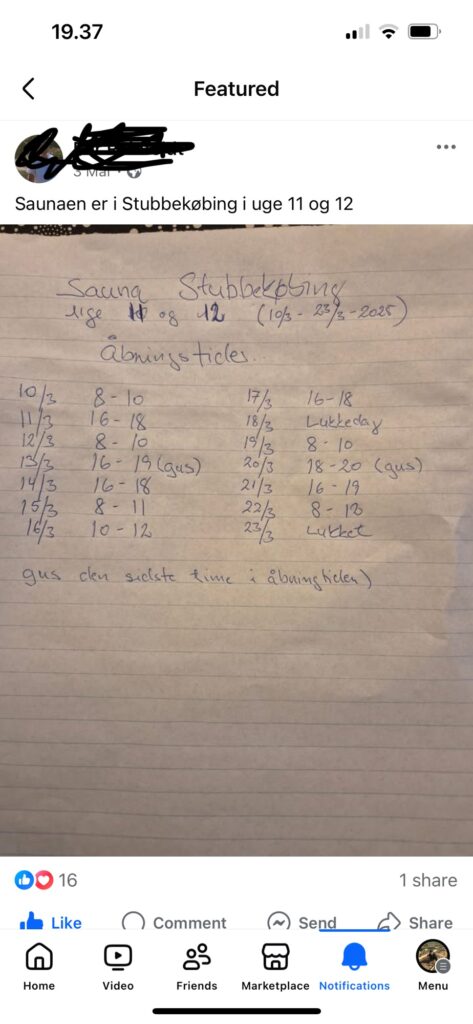 19.37
Featured
3 Mar
Saunaen er i Stubbekøbing i uge 11 og 12
Sauna Stubbekøbing
uge 11 og 12 (10/3 - 23/3 - 2025)
Åbningstider..
10/3 8 - 10 17/3 16-18
11/3 16 - 18 18/3 Lukkedag
12/3 8 - 10 19/3 8 - 10
13/3 16 - 19 (gus) 20/3 18-20 (gus)
14/3 16 - 18 21/3 16 - 19
15/3 8 - 11 22/3 8 -
16/3 10 - 12 23/3 Lukket
gus den sidste time i åbningtiden)
16 1 share
Like Comment Send Share
Home Video Friends Marketplace Notifications Menu